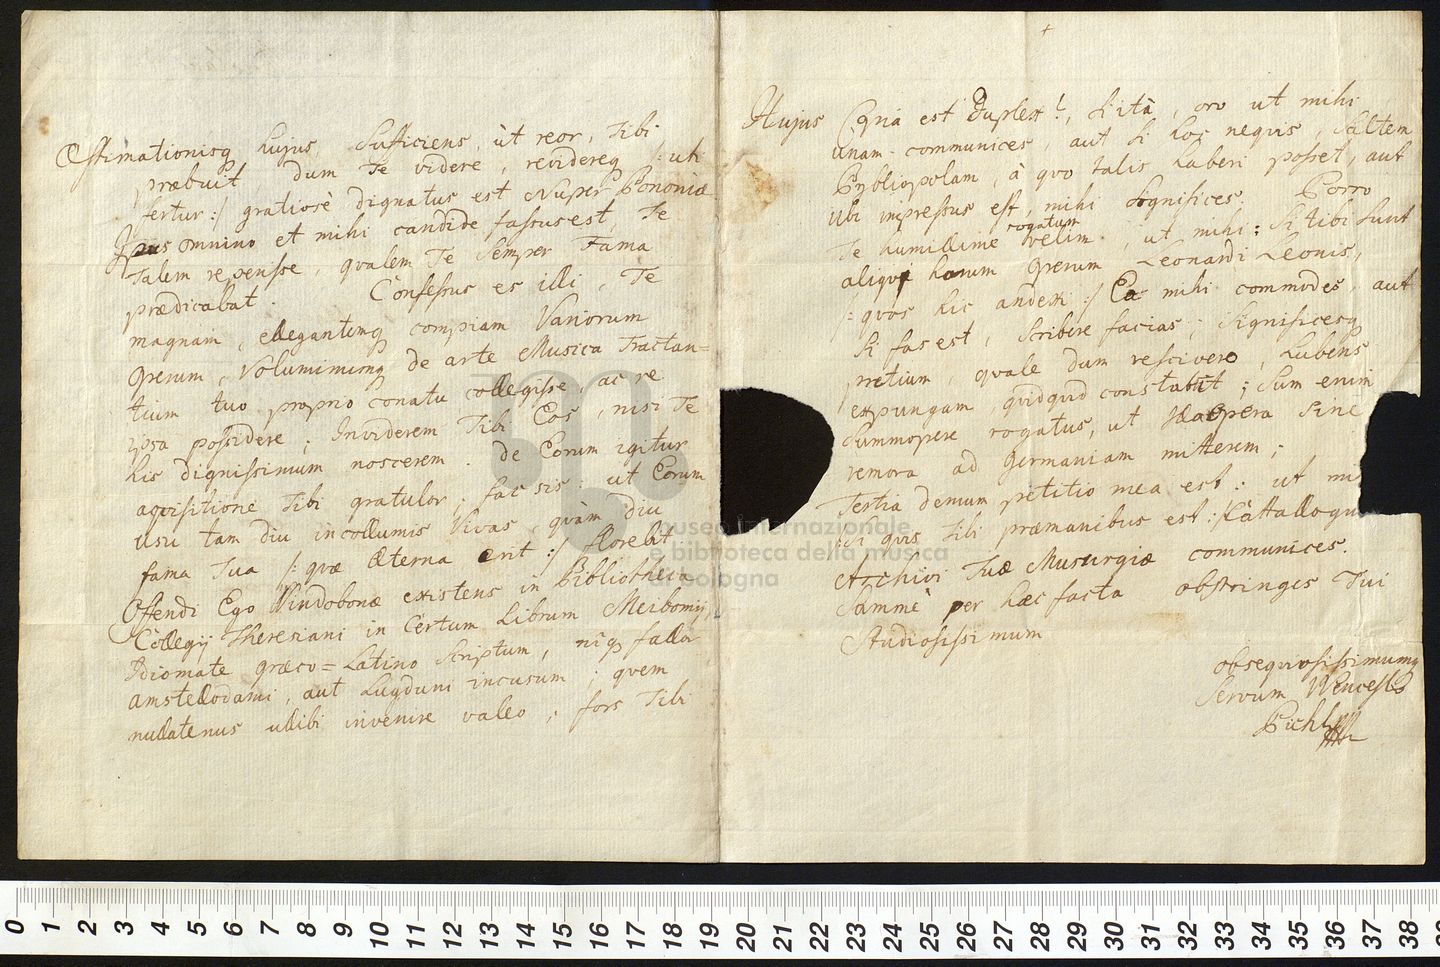 Æstimationisq hujus sufficiens, ùt reor, Tibi
præbuit, dum Te videre, revidereq /: uti
fertur :/ gratiosè dignatus est Nuper Bononiæ
Ipsus omnino et mihi candide fassus est, Te
Talem reperisse, qualem Te Semper Fama
prædicabat. Confessus es illi, Te
magnam, elegantemq compiam Variorum
operum, Voluminumq de arte Musica Tractan=
tium tuo proprio conatu collegisse, ac re
ipsa possidere; Inviderem Tibi Eos, nisi Te
his dignissimum noscerem. de Eorum igitur
aqvisitione Tibi gratulor; fac sis: ut Eorum
usu tam diu incollumis Vivas, quàm diu
fama Tua /: quæ Æterna erit :/ florebit
Offendi Ego Vindobonæ existens in Bibliotheca
Collegij Theresiani in Certum Librum Meibomij,
Idiomate græco=Latino Scriptum, nisq fallor
Amstellodami, aut Lugduni incusum; quem
nullatenus ullibi invenire valeo; fors Tibi
Hujus Copia est Duplex!, si ità, oro ut mihi
ùnam communices, aut si hoc nequis, saltem
Bybliopolam, à quo talis haberi posset, aut
Ubi impressus est, mihi significes. Porro
Te humillime rogatum velim, ut mihi: si tibi sunt
aliqua horum operum Leonardi Leonis,
/: quos hic andex :/ Ea mihi commodes, aut
si fas est, scribere facias; significesq
pretium, quale dum rescivero, lubens
expungam quidquid constabit; sum enim
summopere rogatus, ut Ha opera sine
remora ad Germaniam mitterem;
Tertia demum petitio mea est: ut mi
/: si quis Tibi præmanibus est :/ Cattallogu
Archivi Tuæ Musurgiæ communices.
Summè per hæc facta obstringes Tui
Studiosissimum
obsequiosissimumq
Servum Wenceslo
Pichl
museo internazionale
e biblioteca della musica
di bologna
0 1 2 3 4 5 6 7 8 9 10 11 12 13 14 15 16 17 18 19 20 21 22 23 24 25 26 27 28 29 30 31 32 33 34 35 36 37 38